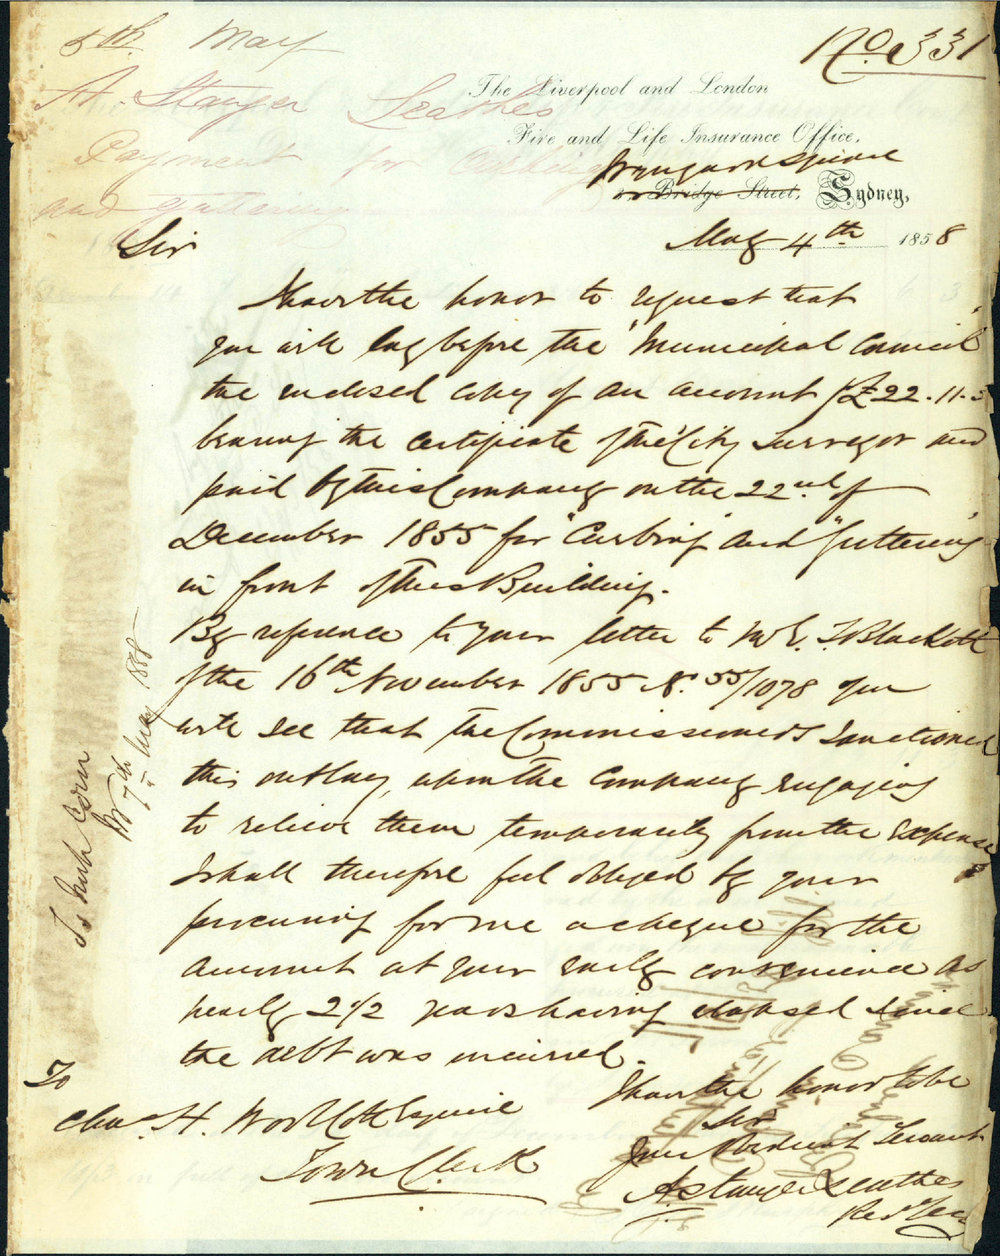 5th May
No 331
A. Stanger Leathes
Payment for Curbing
and Guttering
The Liverpool and London
Fire and Life Insurance Office,
Wynyard Square
Bridge Street, Sydney,
May 4th 1858
Sir
I have the honor to request that
you will lay before the "Municipal Council"
the inclosed copy of an account for £22.11.3
bearing the certificate of the City Surveyor and
paid by this Company on the 22nd of
December 1855 for "Curbing" and "Guttering"
in front of this Building.
By reference to your letter to Mr E. T. Blackett
of the 16th November 1855 No. 55/1078 you
will see that the Commissioners Sanctioned
this outlay, upon the Company engaging
to relieve them temporarily from the expense
I shall therefore feel obliged by your
procuring for me a cheque for the
account at your early convenience as
nearly 2 1/2 years having elapsed since
the debt was incurred.
I have the honor to be
Sir
Your Obedient Servant
A Stanger Leathes
Res Secy
To
Chas. H. Woolcott Esquire
Town Clerk
7th May 1858